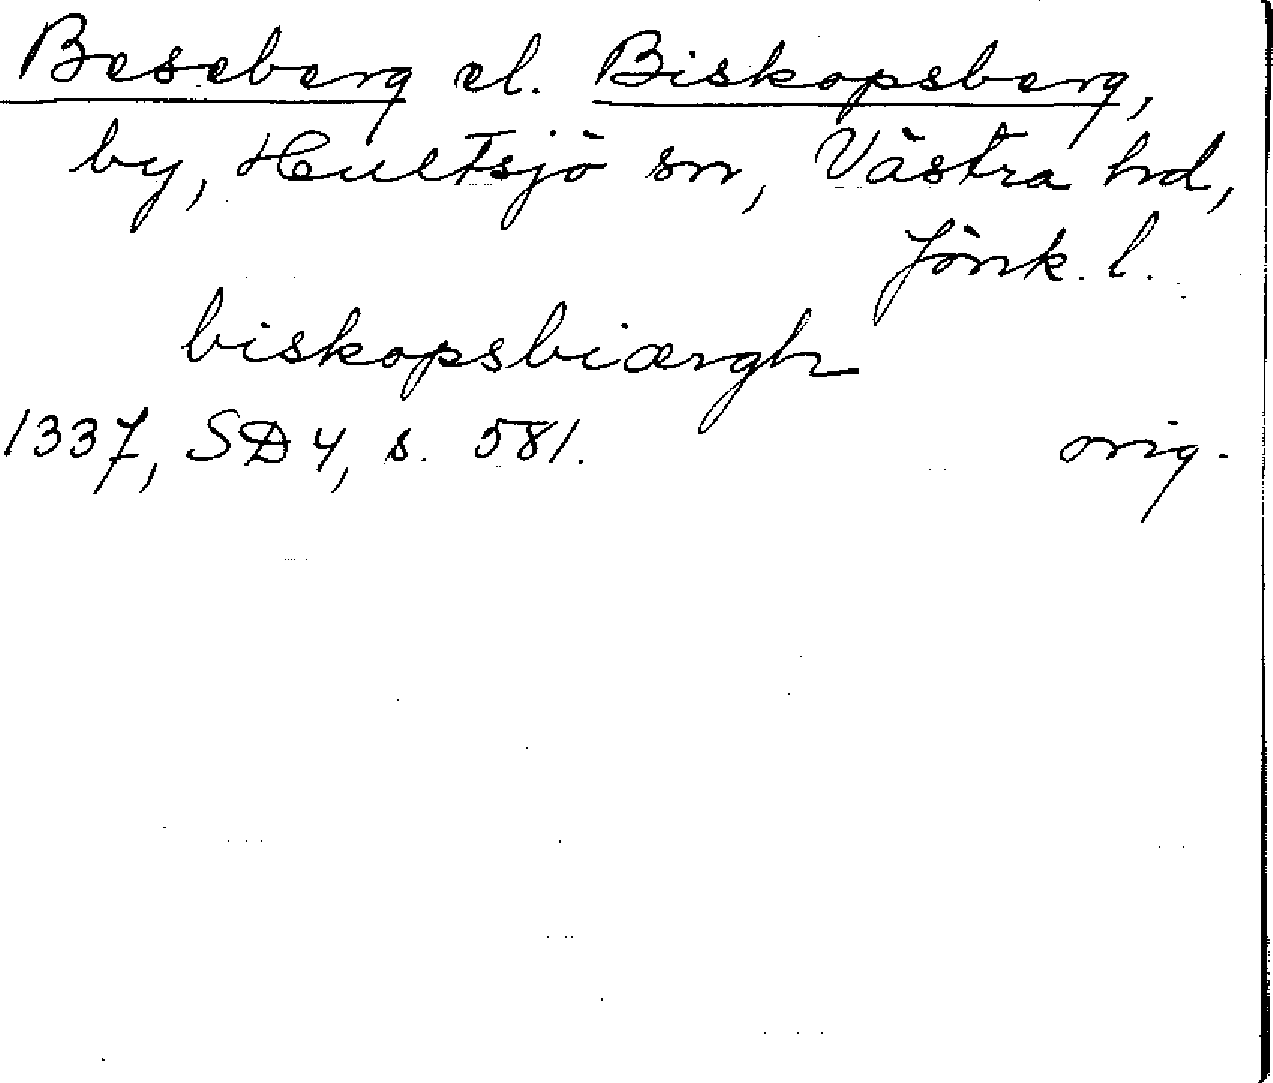 Beseberg el. Biskopsberg,
by, Hultsjö sn, Västra hd,
Jönk. l.
biskopsbiærgh
1337, SD 4, s. 581. orig.